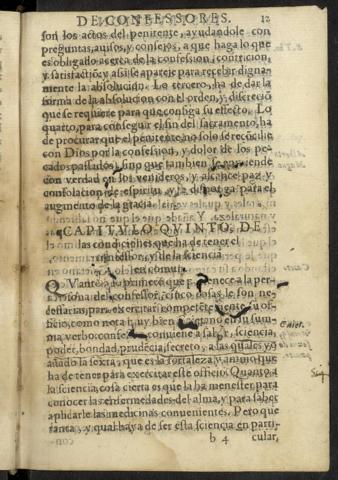 DE CONFESSORES. 12
son los actos del penitente, ayudandole con
preguntas, auisos, y consejos, a que haga lo que
es obligado acerca de la confession, contricion,
y satisfaciõ: y assi se apareje para recebir digna-
mente la absolucion. Lo tercero, ha de dar la
forma de la absolucion con el orden, y discreciõ
que se requiere para que consiga su effecto. Lo
quarto, para conseguir el fin del sacramento, ha
de procurar que el penitente no solo se recõcilie
con Dios por la confession, y dolor de los pe-
cados passados, sino que tambien se enmiende
con verdad en los venideros, y alcance paz y
consolacion de espiritu, y se disponga para el
augmento de la gracia.
CAPITVLO QVINTO, DE
las condiciones que ha de tener el
confessor, y de la sciencia
en comun.
QVanto a lo primero que pertenece a la per-
sona del confessor, cinco cosas le son ne-
cessarias, para exercitar competentemente su of-
ficio, como nota muy bien Caietano en su sum-
ma, verbo confessor, conuiene a saber, sciencia,
poder, bondad, prudẽcia, secreto, a las quales yo
añado la sexta, que es la fortaleza, y animo que
ha de tener para exercitar este officio. Quanto a
la sciencia, cosa cierta es que la ha menester para
conocer las enfermedades del alma, y para saber
aplicarle las medicinas conuenientes. Pero que
tanta, y qual haya de ser esta sciencia en parti-
b 4 cular,
Caiet.